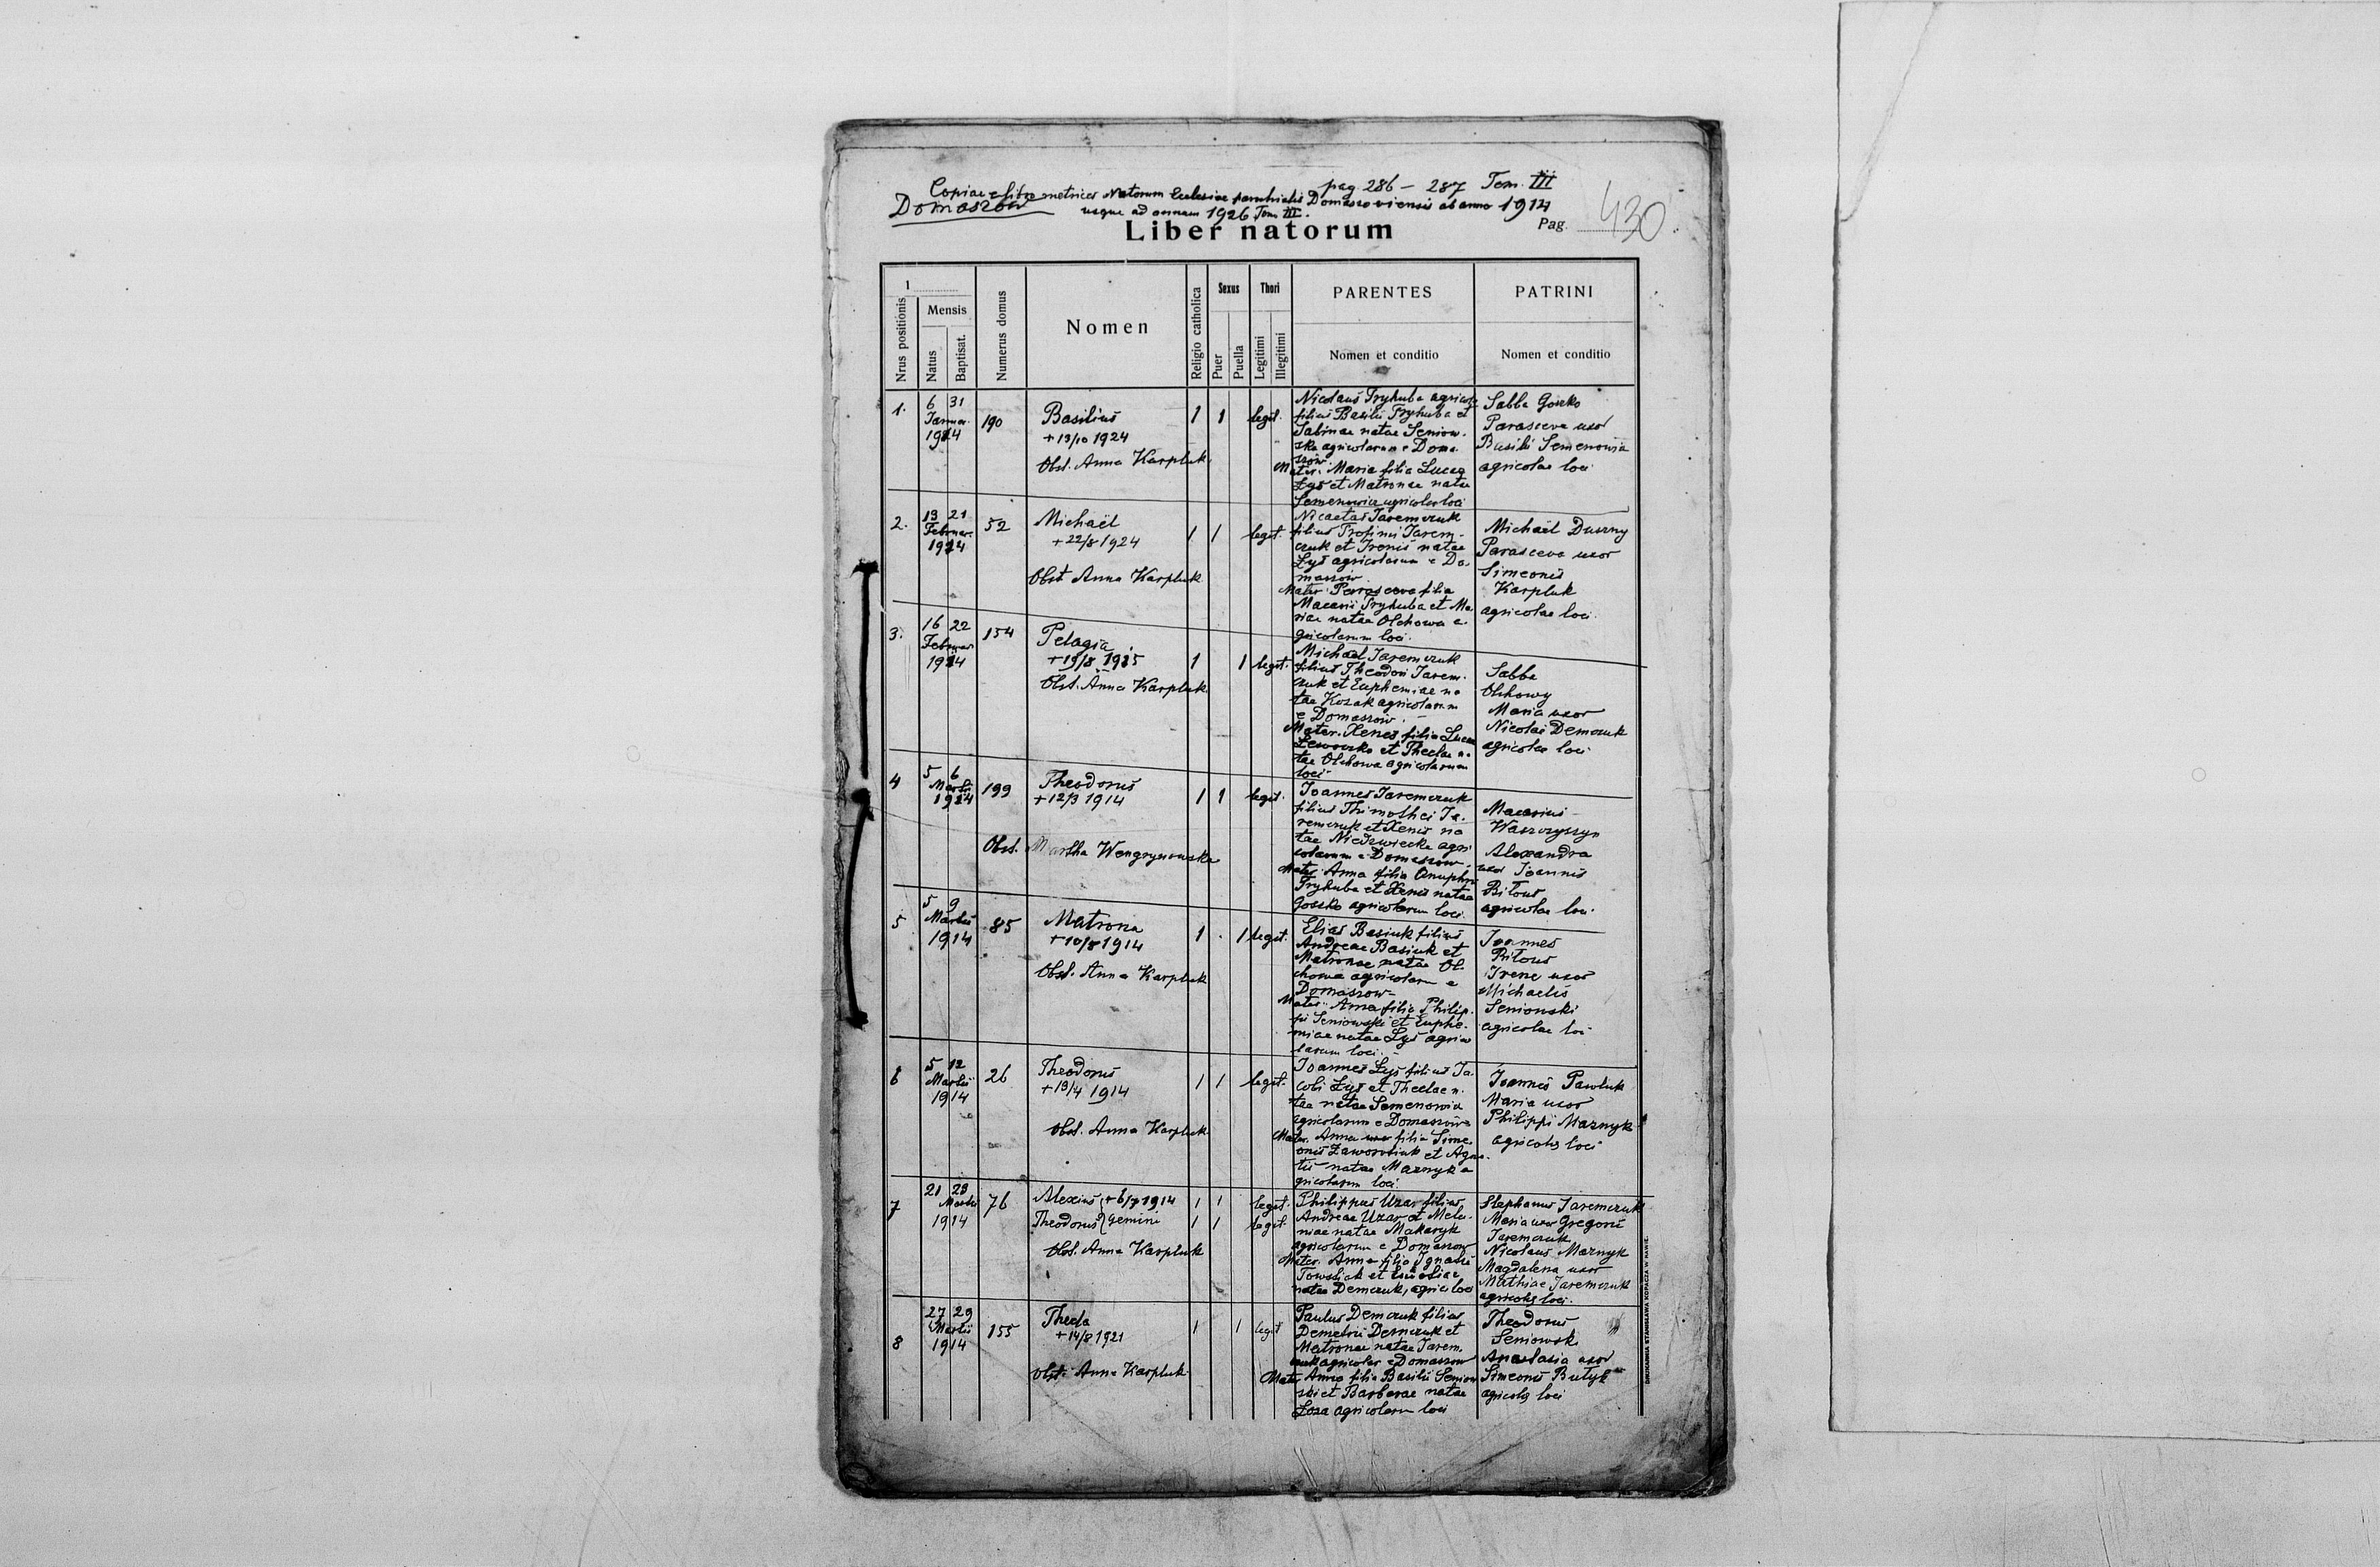 pag 286 – 287 Tom. III
Copiae e libro metrices Natorum Ecclesiae parochialis Domaszoviensis ab anno 1914
Domaszów usque ad annum 1926 Tom. III.
Liber natorum
Pag. 430
1
Nrus positionis
Mensis
Natus
Baptisat.
Numerus domus
Nomen
Religio catholica
Sexus
Puer
Puella
Thori
Legitimi
Illegitimi
PARENTES
Nomen et conditio
PATRINI
Nomen et conditio
1.
6 31
Januar.
1914
190
Basilius
+ 13/10 1924
Obst. Anna Karpluk
1 1 legit.
Nicolaus Tryhuba agricola
filius Basilii Tryhuba et
Sabinae natae Seniow-
ska agricolarum e Doma-
szów.
Mater: Maria filia Lucae
Łyś et Matronae natae
Semenowicz agricolar loci
Sabba Goszko
Parasceva uxor
Basilii Semenowicz
agricolae loci
2.
13 21
Februar.
1914
52
Michaël
+ 22/8 1924
Obst Anna Karpluk
1 1 legit.
Nicaetas Jaremczuk
filius Trofimii Jarem-
czuk et Irenis natae
Łyś agricolarum e Do-
maszów.
Mater Parasceva filia
Macarii Tryhuba et Ma-
riae natae Olchowa a-
gricolarum loci.
Michaël Duszny
Parasceva uxor
Simeonis
Karpluk
agricolae loci.
3.
16 22
Februar
1914
154
Pelagia
+ 19/8 1915
Obst. Anna Karpluk
1 1 legit.
Michaël Jaremczuk
filius Theodori Jarem-
czuk et Euphemiae na-
tae Kozak agricolarum
e Domaszów. –
Mater. Xenia filia Lucae
et Theclae na-
tae Olchowa agricolarum
loci
Sabba
Olchowy
Maria uxor
Nicolai Demczuk
agricolae loci
4
5 6
Martii
1914
199
Theodorus
+ 12/3 1914
Obst. Martha Wengrynowska
1 1 legit.
Joannes Jaremczuk
filius Thimothei Ja-
remczuk et Xenis na-
tae Niedzwiecka agri-
colarum e Domaszow.
Mater Anna filia Onuphrii
Tryhuba et Xenis natae
Goszko agricolarum loci.
Macarius
Waszczyszyn
Alexandra
uxor Joannis
Biłous
agricolae loci.
5
5 9
Martii
1914
85
Matrona
+ 10/8 1914
Obst. Anna Karpluk
1 . 1 legit.
Elias Basiuk filius
Andreae Basiuk et
Matronae natae Ol-
chowa agricolarum e
Domaszow –
Mater Anna filia Philip-
pi Seniowski et Euphe-
miae natae Łyś agrico-
larum loci. –
Joannes
Biłous
Irene uxor
Michaelis
Seniowski
agricolae loci
6
5 12
Martii
1914
26
Theodorus
+ 13/4 1914
obst. Anna Karpluk
1 1 legit.
Joannes Łyś filius Ja-
cobi Łyś et Theclae n-
tae natae Semenowicz
agricolarum e Domaszów
Mater. Anna uxor filia Sime-
onis Zaworotiuk et Agna-
tis natae Maznyk a-
gricolarum loci.
Joannes Pawluk
Maria uxor
Philippi Maznyk
agricolis loci
7
21 23
Martii
1914
76
Alexius + 6/7 1914
Theodorus gemini
Obst. Anna Karpluk
1 1 legit.
1 1 legit.
Philippus Uzar filius
Andreae Uzar et Mela-
niae natae Makaryk
agricolarum e Domaszow
Mater. Anna filia Ignatii
et
natae Demczuk, agric loci
Stephanus Jaremczuk
Maria uxor Gregorii
Jaremczuk
Nicolaus Maznyk
Magdalena uxor
Mathiae Jaremczuk
agricolis loci.
8
27 29
Martii
1914
155
Thecla
+ 14/8 1921
obst. Anna Karpluk
1 1 legit
Paulus Demczuk filius
Demetrii Demczuk et
Matronae natae Jarem-
czuk agricolar e Domaszow
Mater Anna filia Basilii Seniow-
ski et Barbarae natae
Łoza agricolarum loci
Theodorus
Seniowski
Anastasia uxor
Simeonis Butyk
agricolis loci
DRUKARNIA STANISŁAWA KOPACZA W RAWIE.